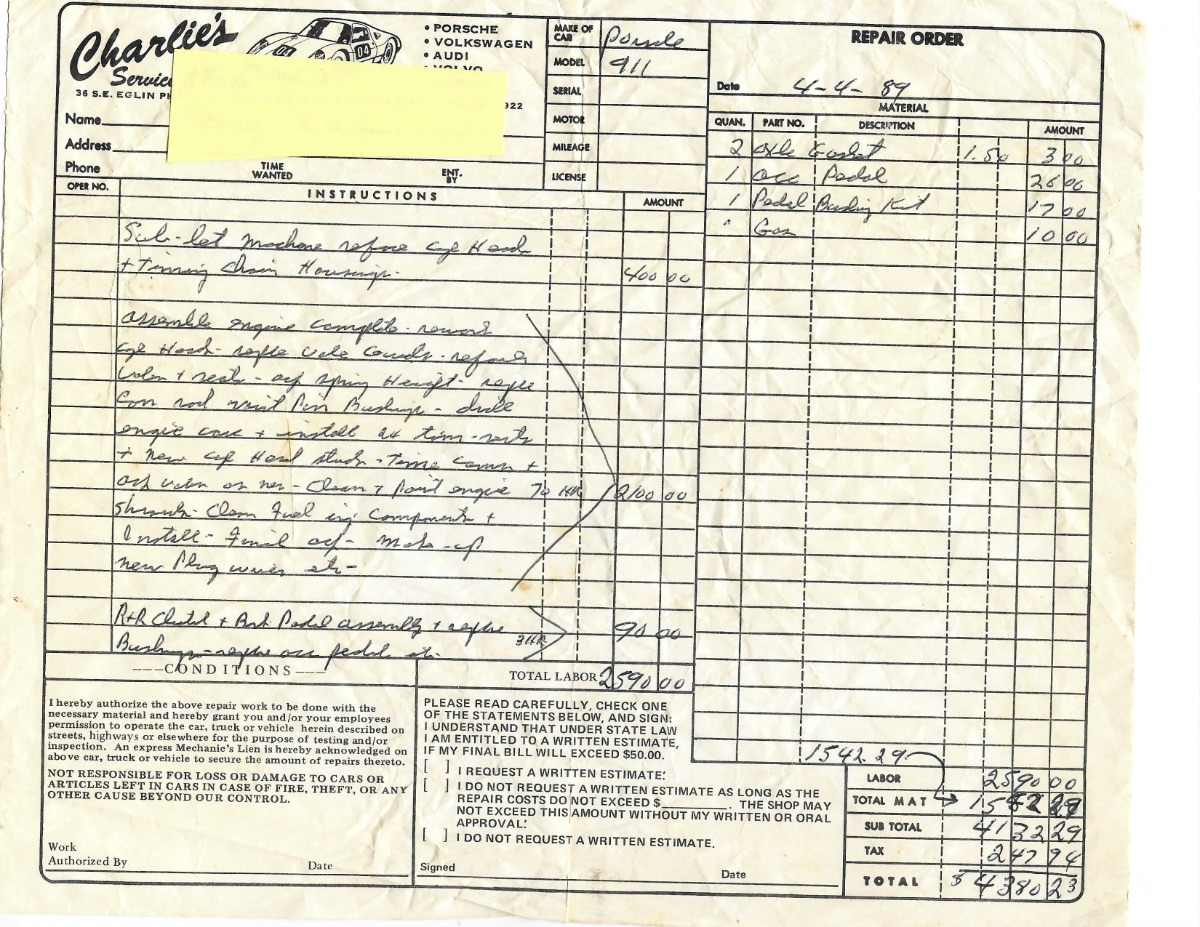 Charlie's
Service
36 S.E. EGLIN
• PORSCHE
• VOLKSWAGEN
• AUDI
• VOLVO
922
Name
Address
Phone
TIME WANTED
ENT. BY
MAKE OF CAR Porsche
MODEL 911
SERIAL
MOTOR
MILEAGE
LICENSE
REPAIR ORDER
Date 4-4-89
MATERIAL
QUAN. PART NO. DESCRIPTION AMOUNT
2 Gasket 1.50 3 00
1 acc Pedal 26 00
1 Pedal Bushing Kit 17 00
Gas 10 00
OPER NO. INSTRUCTIONS AMOUNT
Sub-let machine reface cyl Heads
+ Timing Chain Housings. 400 00
assemble engine complete - rework
cyl Heads - replce Valve Guides - reface
Valves + seats - adj spring Height - replce
Con rod wrist Pin Bushings - drill
engine case + install 24 time-serts
+ new cyl Head studs - Time Cams +
adj valves - Clean + Paint engine 70 HR 2100 00
Shrouds - Clean Fuel inj Components +
Install - Final adj - Make-up
new Plug wires etc -
R+R Clutch + Brk Pedal assembly + replce
Bushings - replce acc pedal etc. 3 HR 90 00
TOTAL LABOR 2590 00
---CONDITIONS---
I hereby authorize the above repair work to be done with the
necessary material and hereby grant you and/or your employees
permission to operate the car, truck or vehicle herein described on
streets, highways or elsewhere for the purpose of testing and/or
inspection. An express Mechanic's Lien is hereby acknowledged on
above car, truck or vehicle to secure the amount of repairs thereto.
NOT RESPONSIBLE FOR LOSS OR DAMAGE TO CARS OR
ARTICLES LEFT IN CARS IN CASE OF FIRE, THEFT, OR ANY
OTHER CAUSE BEYOND OUR CONTROL.
Work
Authorized By Date
PLEASE READ CAREFULLY, CHECK ONE
OF THE STATEMENTS BELOW, AND SIGN:
I UNDERSTAND THAT UNDER STATE LAW
I AM ENTITLED TO A WRITTEN ESTIMATE,
IF MY FINAL BILL WILL EXCEED $50.00.
[ ] I REQUEST A WRITTEN ESTIMATE.
[ ] I DO NOT REQUEST A WRITTEN ESTIMATE AS LONG AS THE
REPAIR COSTS DO NOT EXCEED $________. THE SHOP MAY
NOT EXCEED THIS AMOUNT WITHOUT MY WRITTEN OR ORAL
APPROVAL.
[ ] I DO NOT REQUEST A WRITTEN ESTIMATE.
Signed Date
1542.29
LABOR 2590 00
TOTAL MAT 1542 29
SUB TOTAL 4132 29
TAX 247 94
TOTAL $ 4380 23